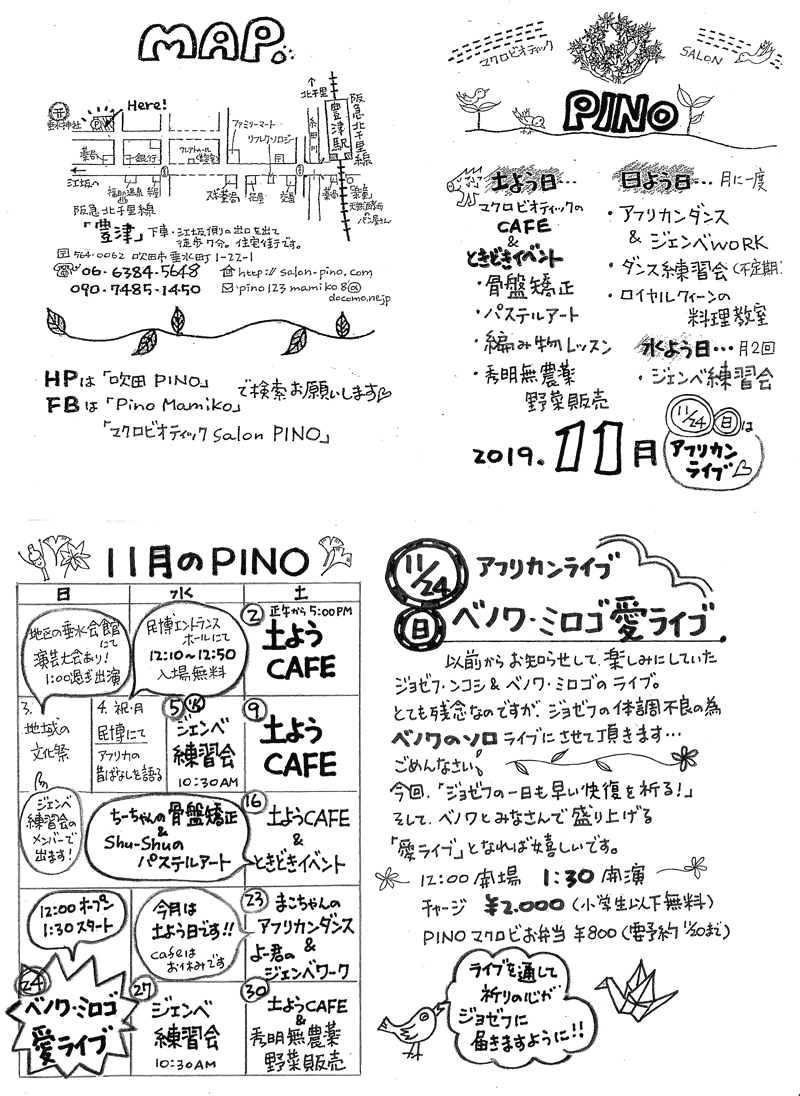 MAP.
Here!
北千里
阪急北千里線
豊津駅
糸田川
ファミリーマート
リフレクソロジー
PINO
垂水神社
薬局
銀行
江坂へ
スギ薬局
花屋
交番
阪急北千里線
「豊津」下車・江坂側の出口を出て
徒歩7分。住宅街です。
〒564-0062 吹田市垂水町1-22-1
06-6384-5648
http://salon-pino.com
090-7485-1450
pino123mamiko8@
docomo.ne.jp
HPは「吹田PINO」
FBは「Pino Mamiko」
で検索お願いします
「マクロビオティックSalon PINO」
マクロビオティック
SALON
PINO
土よう日…
マクロビオティックの
CAFE
&
ときどきイベント
・骨盤矯正
・パステルアート
・編み物レッスン
・秀明無農薬
野菜販売
日よう日…月に一度
・アフリカンダンス
&ジェンベWORK
・ダンス練習会(不定期)
・ロイヤルクィーンの
料理教室
水よう日…月2回
・ジェンベ練習会
2019.11月
11/24 日は
アフリカン
ライブ
11月のPINO
日
水
土
地区の垂水会館
にて
演芸大会あり!
1:00過ぎ出演
民博エントランス
ホールにて
12:10~12:50
入場無料
2 正午から5:00PM
土よう
CAFE
3.
地域の
文化祭
4. 祝・月
民博にて
アフリカの
昔ばなしを語る
5 火
ジェンベ
練習会
10:30AM
9
土よう
CAFE
ジェンベ
練習会の
メンバーで
出ます!
ちーちゃんの骨盤矯正
&
Shu-Shuの
パステルアート
16
土ようCAFE
&
ときどきイベント
12:00オープン
1:30スタート
今月は
土よう日です!!
cafeは
お休みです
23
まこちゃんの
アフリカンダンス
&
よー君の
ジェンベワーク
24
ベノワ・ミロゴ
愛ライブ
27
ジェンベ
練習会
10:30AM
30
土ようCAFE
&
秀明無農薬
野菜販売
11/24
日
アフリカンライブ
ベノワ・ミロゴ愛ライブ
以前からお知らせして、楽しみにしていた
ジョゼフ・ンコシ&ベノワ・ミロゴのライブ。
とても残念なのですが、ジョゼフの体調不良の為
ベノワのソロライブにさせて頂きます…
ごめんなさい!
今回、「ジョゼフの一日も早い快復を祈る!」
そして、ベノワとみなさんで盛り上げる
「愛ライブ」となれば嬉しいです。
12:00開場 1:30開演
チャージ ¥2.000(小学生以下無料)
PINOマクロビお弁当¥800(要予約11/20まで)
ライブを通して
祈りの心が
ジョゼフに
届きますように!!